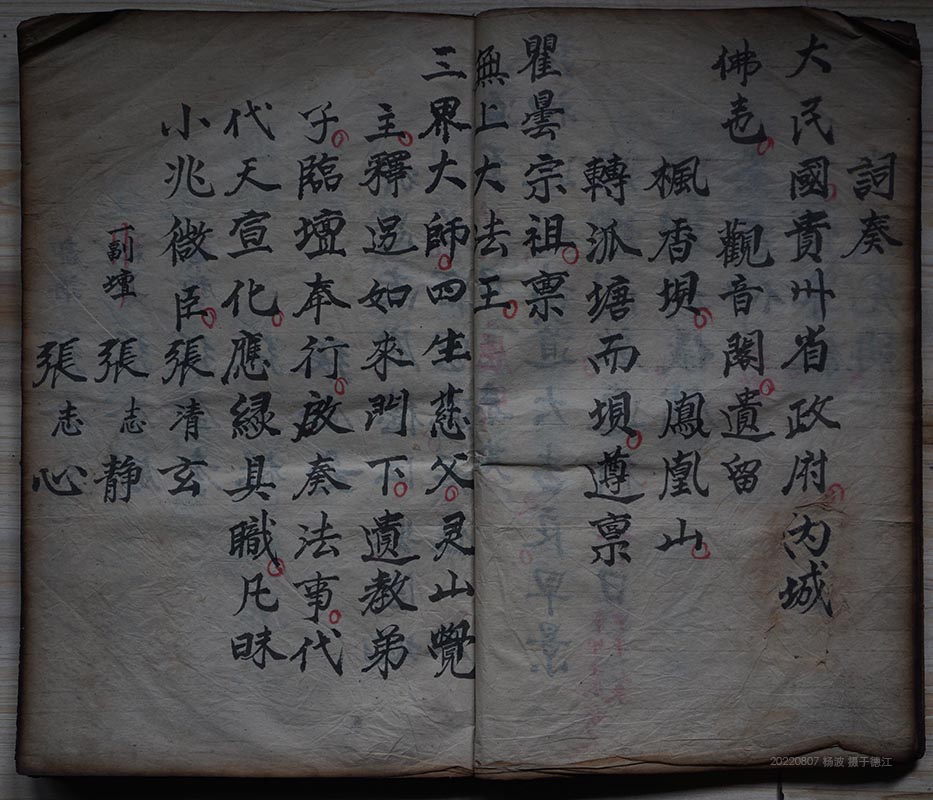 詞奏
大民國貴州省政府內城
佛卋觀音閣遺留
楓香垻鳳凰山
轉派塘而垻遵禀
瞿曇宗祖禀
無上大法王
三界大師四生慈父灵山覺
主釋迦如來門下遺教弟
子臨壇奉行啟奏法事代
代天宣化應緣具職凡昧
小兆微臣張清玄
副壇張志静
張志心
20220807 杨波 摄于德江